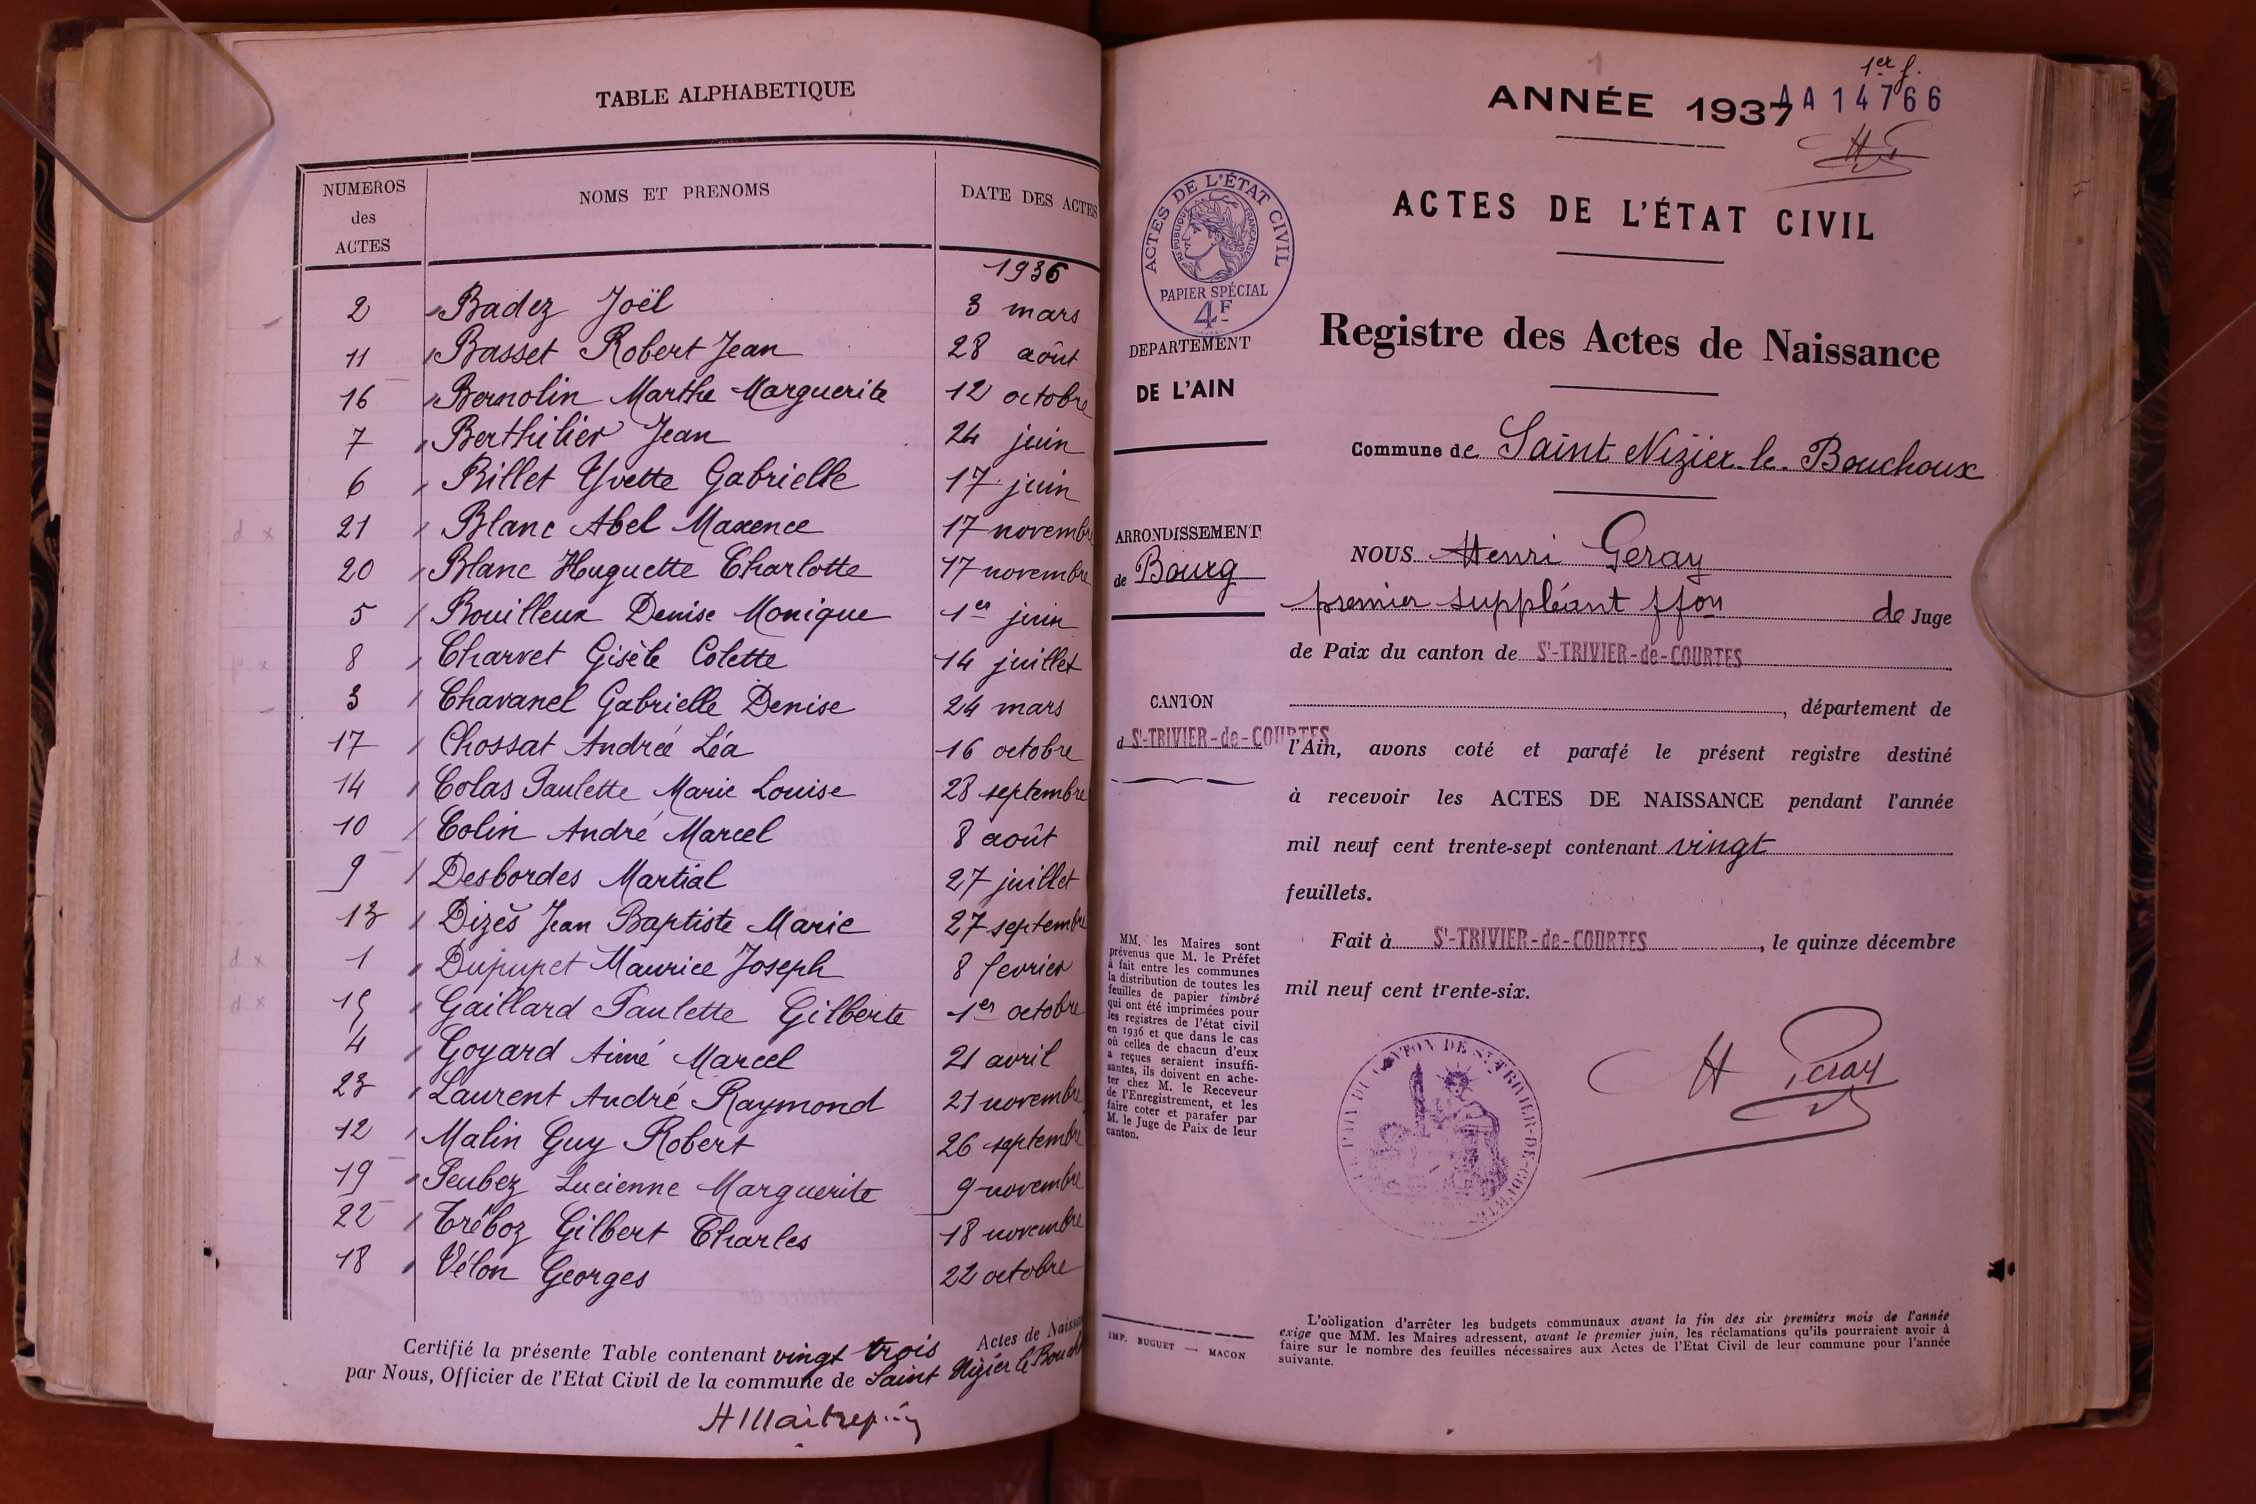 TABLE ALPHABETIQUE
NUMEROS
des
ACTES
NOMS ET PRENOMS
DATE DES ACTES
1936
2 Badez Joël 3 mars
11 Basset Robert Jean 28 août
16 Bernolin Marthe Marguerite 12 octobre
7 Berthilier Jean 24 juin
6 Billet Yvette Gabrielle 17 juin
21 Blanc Abel Maxence 17 novembre
20 Blanc Huguette Charlotte 17 novembre
5 Bouilleux Denise Monique 1er juin
8 Charvet Gisèle Colette 14 juillet
3 Chavanel Gabrielle Denise 24 mars
17 Chossat Andrée Léa 16 octobre
14 Colas Paulette Marie Louise 28 septembre
10 Colin André Marcel 8 août
9 Desbordes Martial 27 juillet
13 Dizès Jean Baptiste Marie 27 septembre
1 Dupupet Maurice Joseph 8 fevrier
15 Gaillard Paulette Gilberte 1er octobre
4 Goyard Aimé Marcel 21 avril
23 Laurent André Raymond 21 novembre
12 Malin Guy Robert 26 septembre
19 Peubez Lucienne Marguerite 9 novembre
22 Tréboz Gilbert Charles 18 novembre
18 Vélon Georges 22 octobre
Certifié la présente Table contenant vingt trois Actes de Naissan
par Nous, Officier de l'Etat Civil de la commune de Saint Nizier le Bouch
1er f.
ANNÉE 1937
AA 14766
ACTES DE L'ÉTAT CIVIL
ACTES DE L'ÉTAT CIVIL
RÉPUBLIQUE FRANÇAISE
PAPIER SPÉCIAL
4F
DEPARTEMENT
DE L'AIN
Registre des Actes de Naissance
Commune de Saint Nizier-le-Bouchoux
ARRONDISSEMENT
de Bourg
NOUS Henri Geray
premier suppléant ffon de Juge
de Paix du canton de St-TRIVIER-de-COURTES
CANTON
d St-TRIVIER-de-COURTES
, département de
l'Ain, avons coté et parafé le présent registre destiné
à recevoir les ACTES DE NAISSANCE pendant l'année
mil neuf cent trente-sept contenant vingt
feuillets.
Fait à St-TRIVIER-de-COURTES, le quinze décembre
mil neuf cent trente-six.
MM. les Maires sont
prévenus que M. le Préfet
a fait entre les communes
la distribution de toutes les
feuilles de papier timbré
qui ont été imprimées pour
les registres de l'état civil
en 1936 et que dans le cas
où celles de chacun d'eux
a reçues seraient insuffi-
santes, ils doivent en ache-
ter chez M. le Receveur
de l'Enregistrement, et les
faire coter et parafer par
M. le Juge de Paix de leur
canton.
H Geray
PAIX DU CANTON DE St-TRIVIER-DE-COURTES
IMP. BUGUET — MACON
L'obligation d'arrêter les budgets communaux avant la fin des six premiers mois de l'année
exige que MM. les Maires adressent, avant le premier juin, les réclamations qu'ils pourraient avoir à
faire sur le nombre des feuilles nécessaires aux Actes de l'Etat Civil de leur commune pour l'année
suivante.